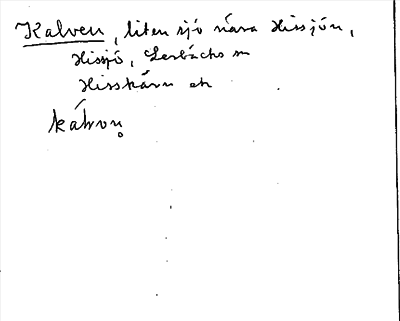 Kalven, liten sjö nära Hissjön,
Hissjö, Lerbäcks sn
Hisskärn
kálvon̥